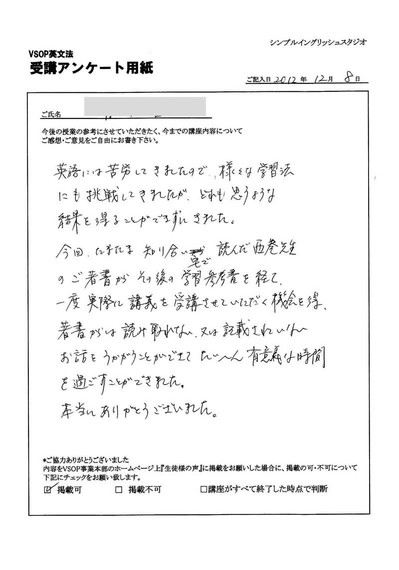 シンプルイングリッシュスタジオ
VSOP英文法
受講アンケート用紙
ご記入日 2012 年 12 月 8 日
ご氏名
今後の授業の参考にさせていただきたく、今までの講座内容について
ご感想・ご意見をご自由にお書き下さい。
英語には苦労してきましたので、様々な学習法
にも挑戦してきましたが、どれも思うような
結果を得ることができずにきました。
今回、たまたま知り合い宅で読んだ西巻先生
のご著書が その後の学習参考書を経て、
一度実際に講義を受講させていただく機会を得、
著書からは読み取れない、又は記載されていない
お話をうかがうことができて たいへん有意義な時間
を過ごすことができました。
本当にありがとうございました。
*ご協力ありがとうございました
内容をVSOP事業本部のホームページ上『生徒様の声』に掲載をお願いした場合に、掲載の可・不可について
下記にチェックをお願い致します。
☑ 掲載可 □ 掲載不可 □講座がすべて終了した時点で判断